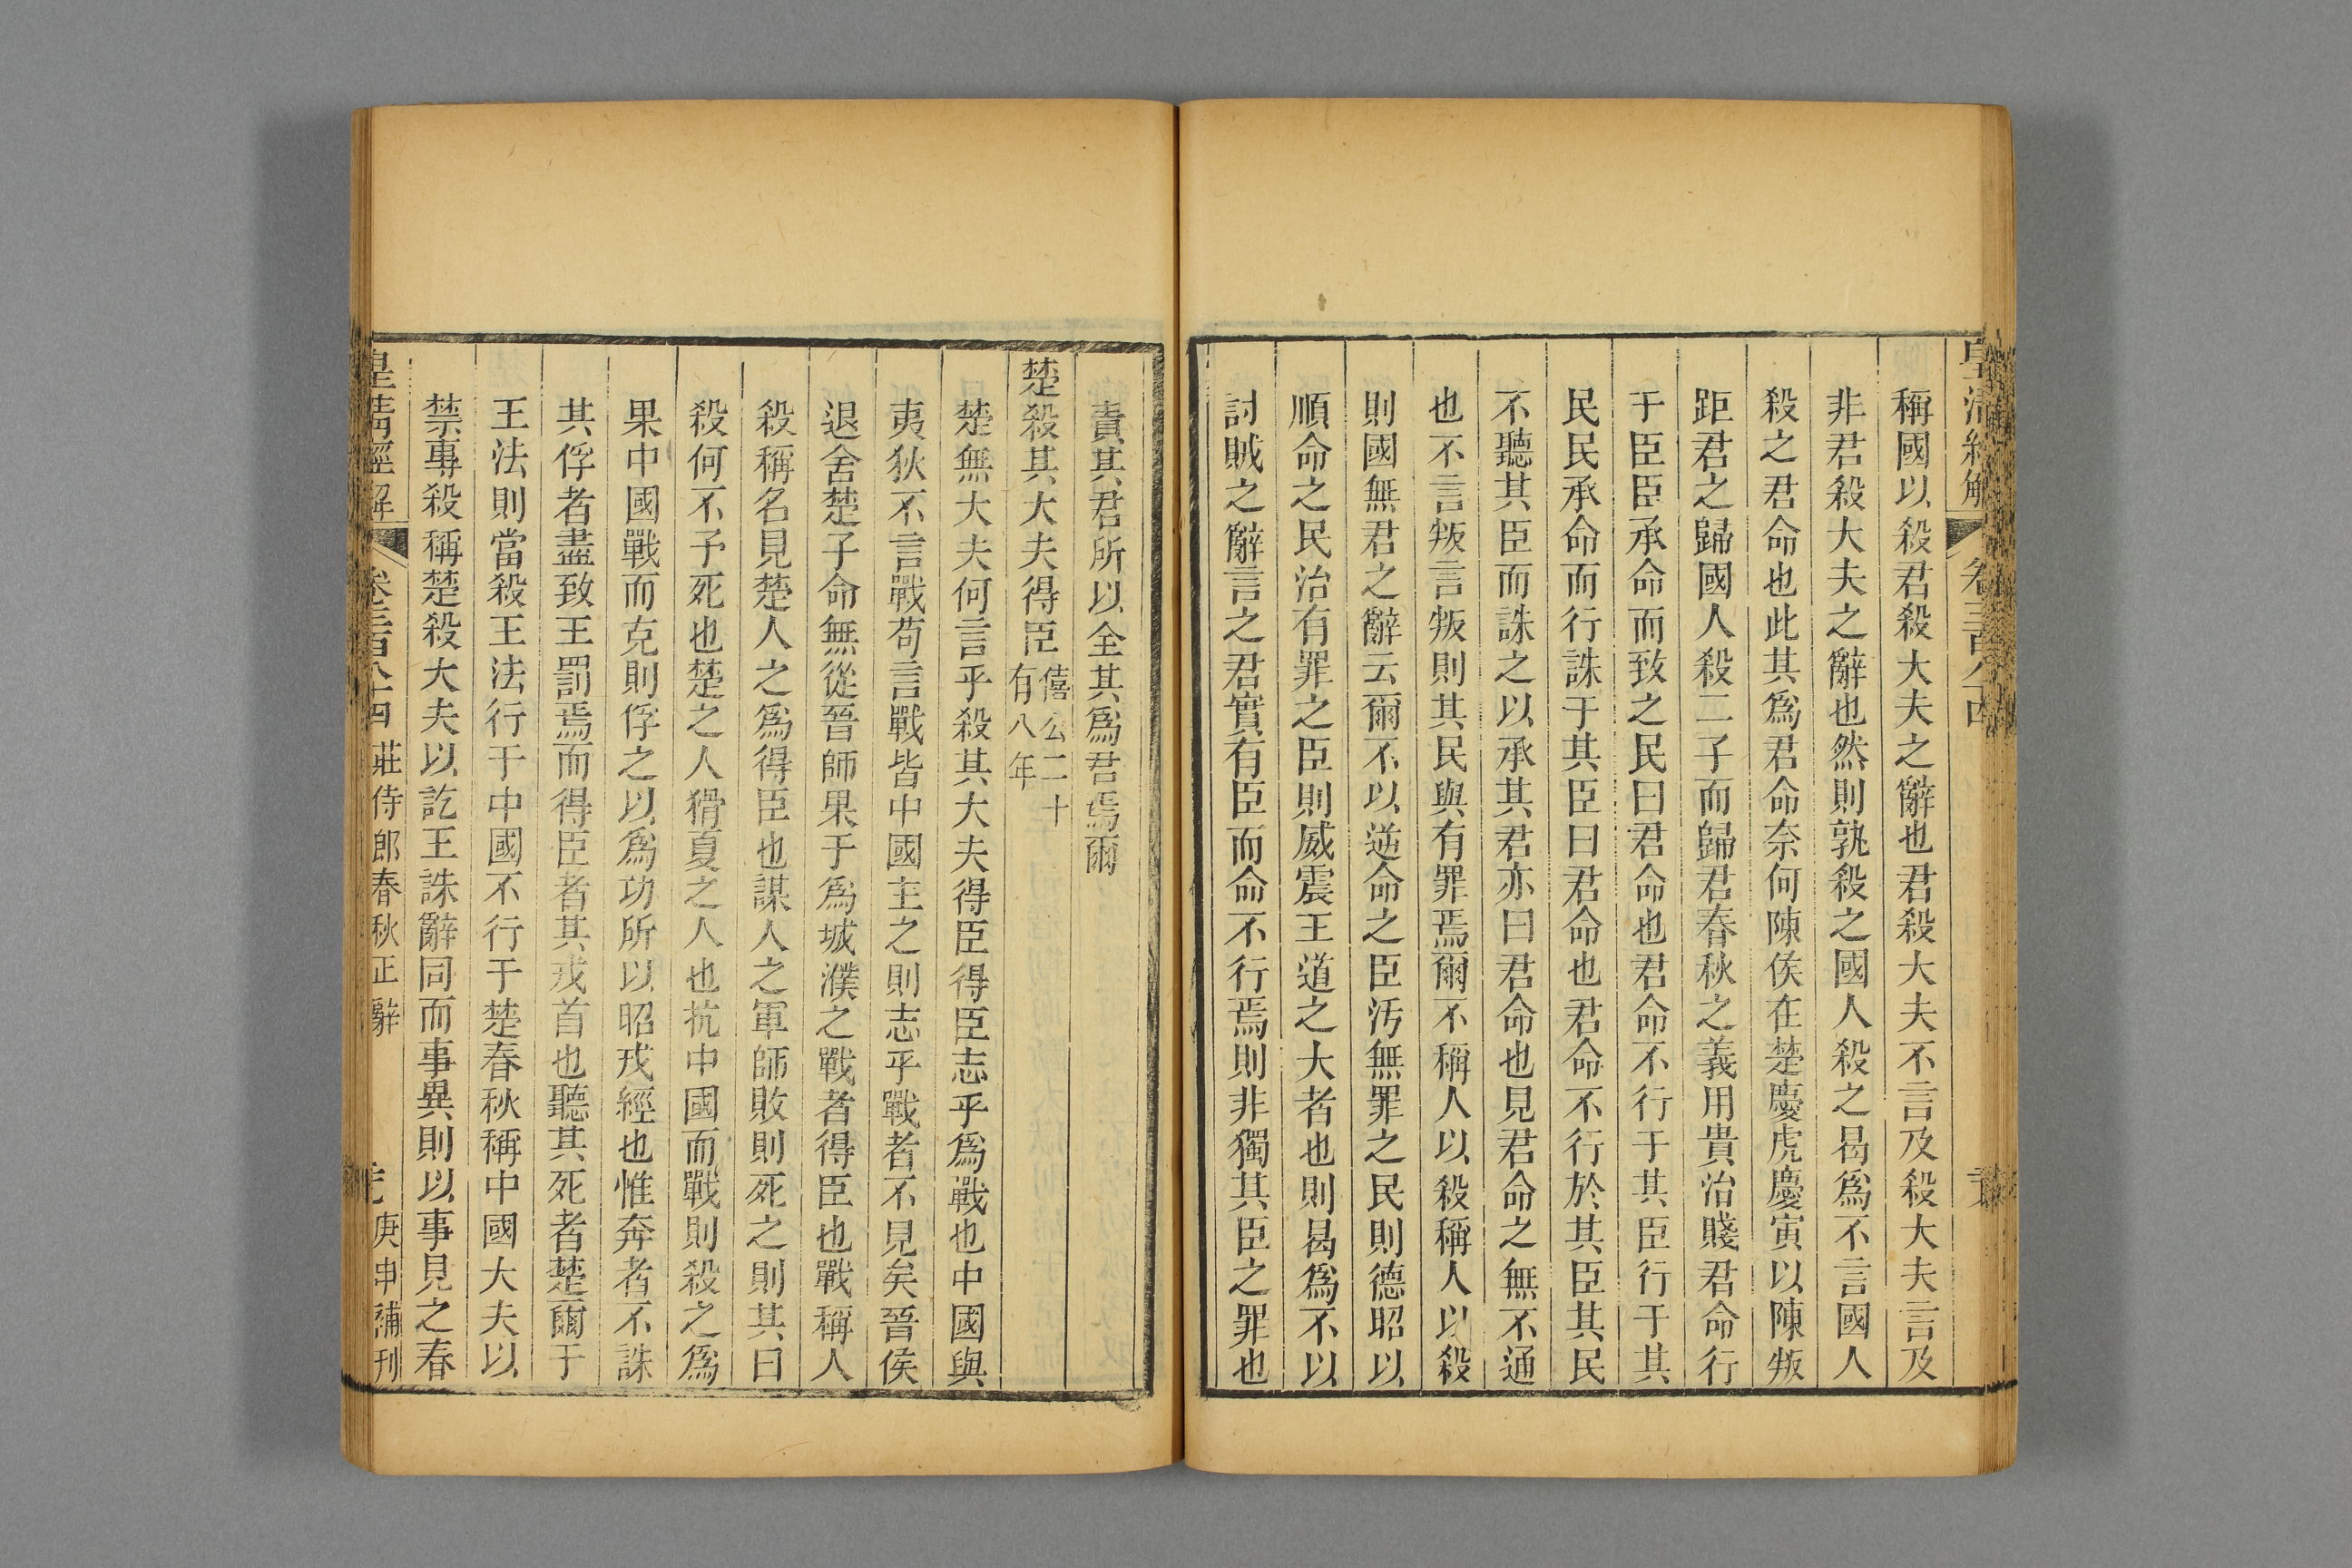 皇清經解 卷三百八十四
稱國以殺君殺大夫之辭也君殺大夫不言及殺大夫言及
非君殺大夫之辭也然則孰殺之國人殺之曷爲不言國人
殺之君命也此其爲君命奈何陳侯在楚慶虎慶寅以陳叛
距君之歸國人殺二子而歸君春秋之義用貴治賤君命行
于臣臣承命而致之民曰君命也君命不行于其臣行于其
民民承命而行誅于其臣曰君命也君命不行於其臣其民
不聽其臣而誅之以承其君亦曰君命也見君命之無不通
也不言叛言叛則其民與有罪焉爾不稱人以殺稱人以殺
則國無君之辭云爾不以逆命之臣汚無罪之民則德昭以
順命之民治有罪之臣則威震王道之大者也則曷爲不以
討賊之辭言之君實有臣而命不行焉則非獨其臣之罪也
責其君所以全其爲君焉爾
楚殺其大夫得臣僖公二十有八年
楚無大夫何言乎殺其大夫得臣得臣志乎爲戰也中國與
夷狄不言戰苟言戰皆中國主之則志乎戰者不見矣晉侯
退舍楚子命無從晉師果于爲城濮之戰者得臣也戰稱人
殺稱名見楚人之爲得臣也謀人之軍師敗則死之則其曰
殺何不予死也楚之人猾夏之人也抗中國而戰則殺之爲
果中國戰而克則俘之以爲功所以昭戎經也惟奔者不誅
其俘者盡致王罰焉而得臣者其戎首也聽其死者楚爾于
王法則當殺王法行于中國不行于楚春秋稱中國大夫以
禁專殺稱楚殺大夫以訖王誅辭同而事異則以事見之春
皇清經解 卷三百八十四 莊侍郎春秋正辭 庚申補刊